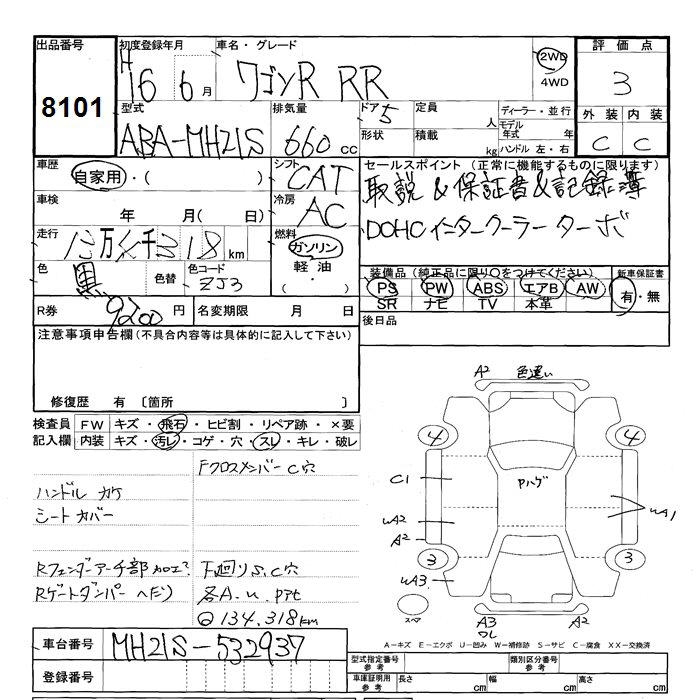 出品番号
8101
初度登録年月
H16 6月
車名・グレード
ワゴンR RR
2WD
4WD
評価点
3
外装 内装
C C
型式
ABA-MH21S
排気量
660 cc
ドア 5
形状
定員 人
積載 kg
ディーラー・並行
モデル年式 年
ハンドル 左・右
車歴
自家用・( )
シフト
CAT
セールスポイント (正常に機能するものに限ります)
取説&保証書&記録簿
DOHCインタークーラーターボ
車検
年 月( 日)
冷房
AC
走行
13万4千318km
燃料
ガソリン
軽油
・( )
色
黒
色替
色コード
ZJ3
装備品(純正品に限り○をつけてください)
PS PW ABS エアB AW
SR ナビ TV 本革
新車保証書
有・無
R券
9200円
名変期限 月 日
後日品
注意事項申告欄(不具合内容等は具体的に記入して下さい)
修復歴 有 〔箇所 〕
検査員
記入欄
FW キズ・飛石・ヒビ割・リペア跡・×要
内装 キズ・汚レ・コゲ・穴・スレ・キレ・破レ
Fクロスメンバー C穴
ハンドル カケ
シートカバー
Rフェンダーアーチ部加工?
下廻りS.C穴
Rゲートダンパー ヘタリ
各A.u.PPt
134.318km
A2 色違い
4 4
C1
Pハゲ
uA2
uA1
A2
3 3
uA3
スペア
A3
A2
A-キズ E-エクボ U-凹み W-補修跡 S-サビ C-腐食 XX-交換済
車台番号
MH21S-532937
登録番号
型式指定番号
参考
類別区分番号
参考
車庫証明用
参考
長さ cm
幅 cm
高さ cm